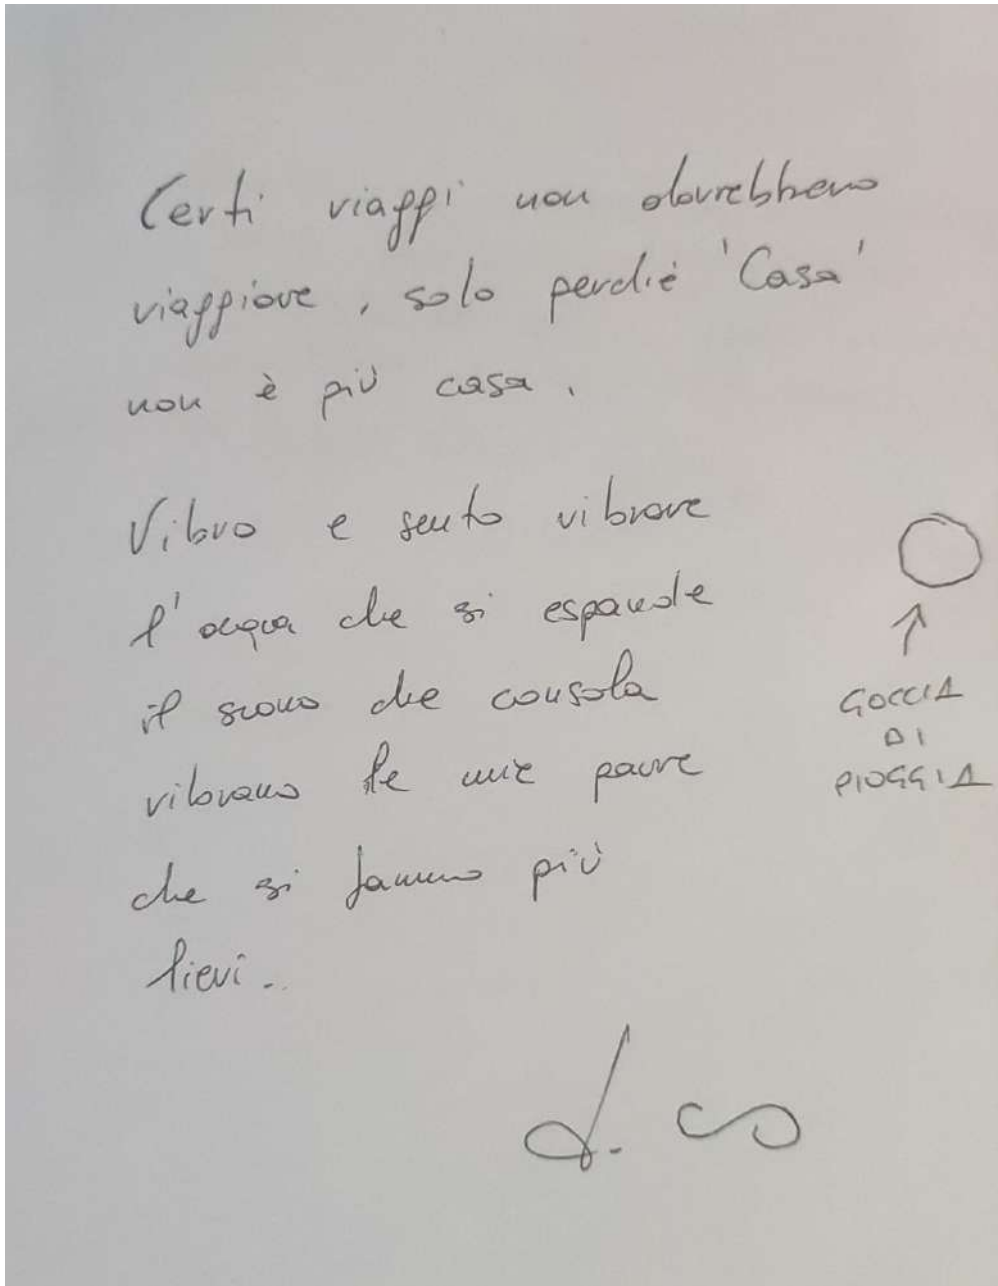 Certi viaggi non dovrebbero
viaggiare, solo perché 'Casa'
non è più casa.
Vibro e sento vibrare
l'acqua che si espande
il suono che consola
vibrano le mie paure
che si fanno più
lievi.
GOCCIA
DI
PIOGGIA